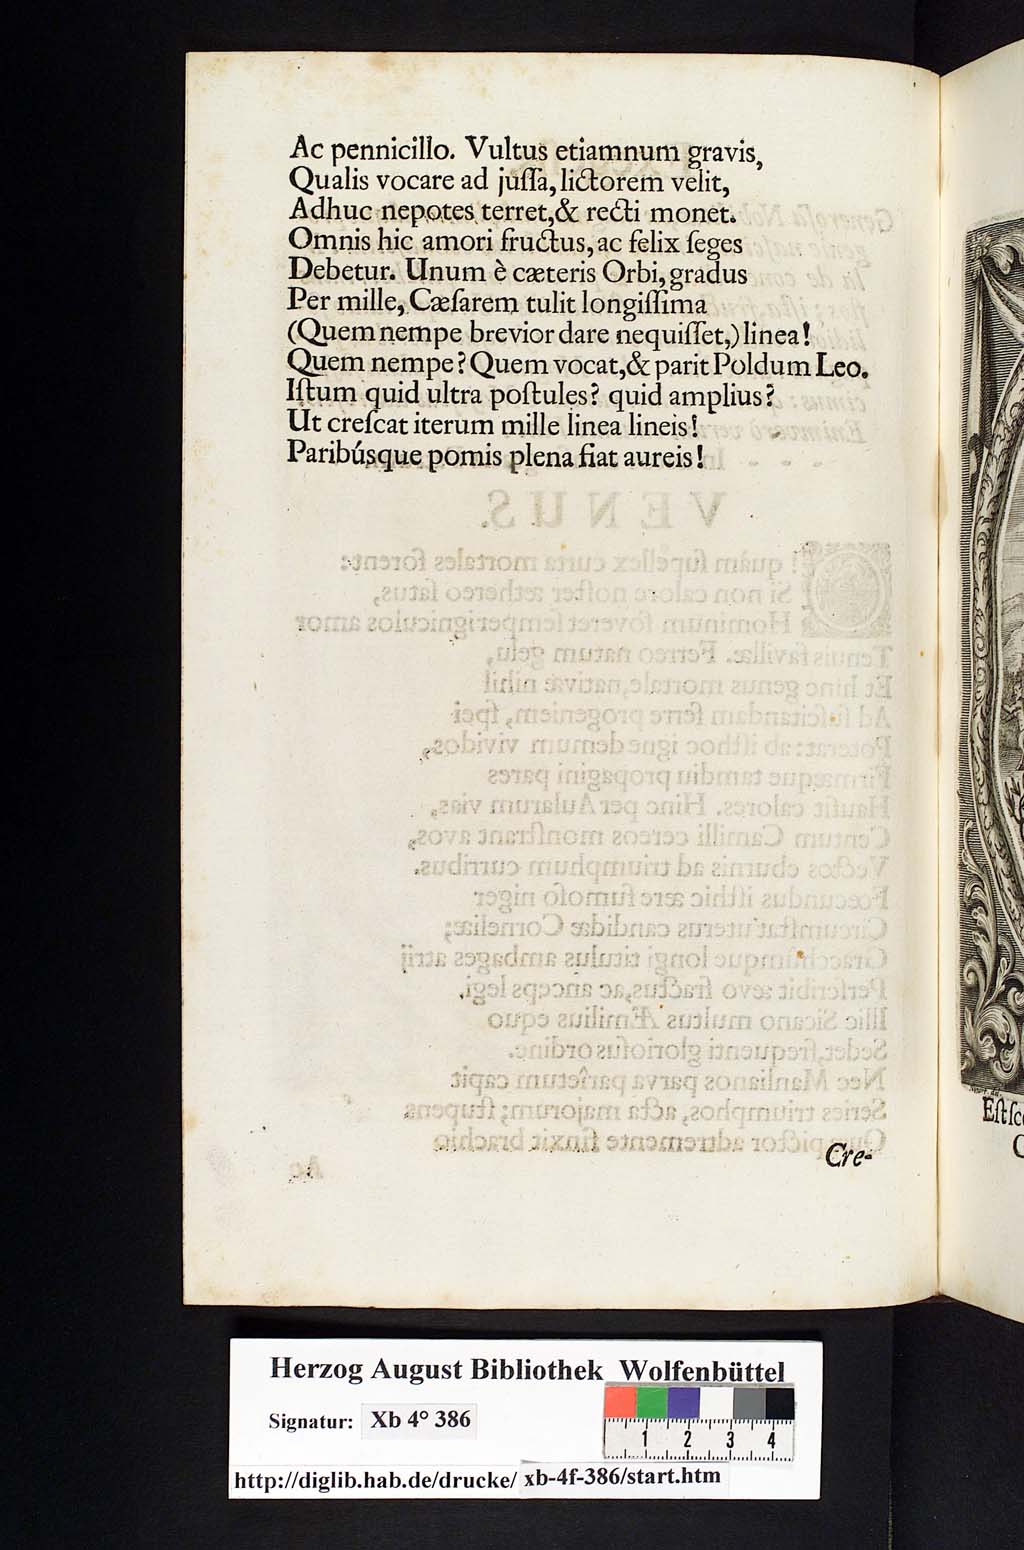 Ac pennicillo. Vultus etiamnum gravis,
Qualis vocare ad juſſa, lictorem velit,
Adhuc nepotes terret, & recti monet.
Omnis hic amori fructus, ac felix ſeges
Debetur. Unum è cæteris Orbi, gradus
Per mille, Cæſarem tulit longiſſima
(Quem nempe brevior dare nequiſſet,) linea!
Quem nempe? Quem vocat, & parit Poldum Leo.
Iſtum quid ultra poſtules? quid amplius?
Ut creſcat iterum mille linea lineis!
Paribúsque pomis plena fiat aureis!
Cre-
Eſt ſc
Herzog August Bibliothek Wolfenbüttel
Signatur: Xb 4° 386
1 2 3 4
http://diglib.hab.de/drucke/ xb-4f-386/start.htm